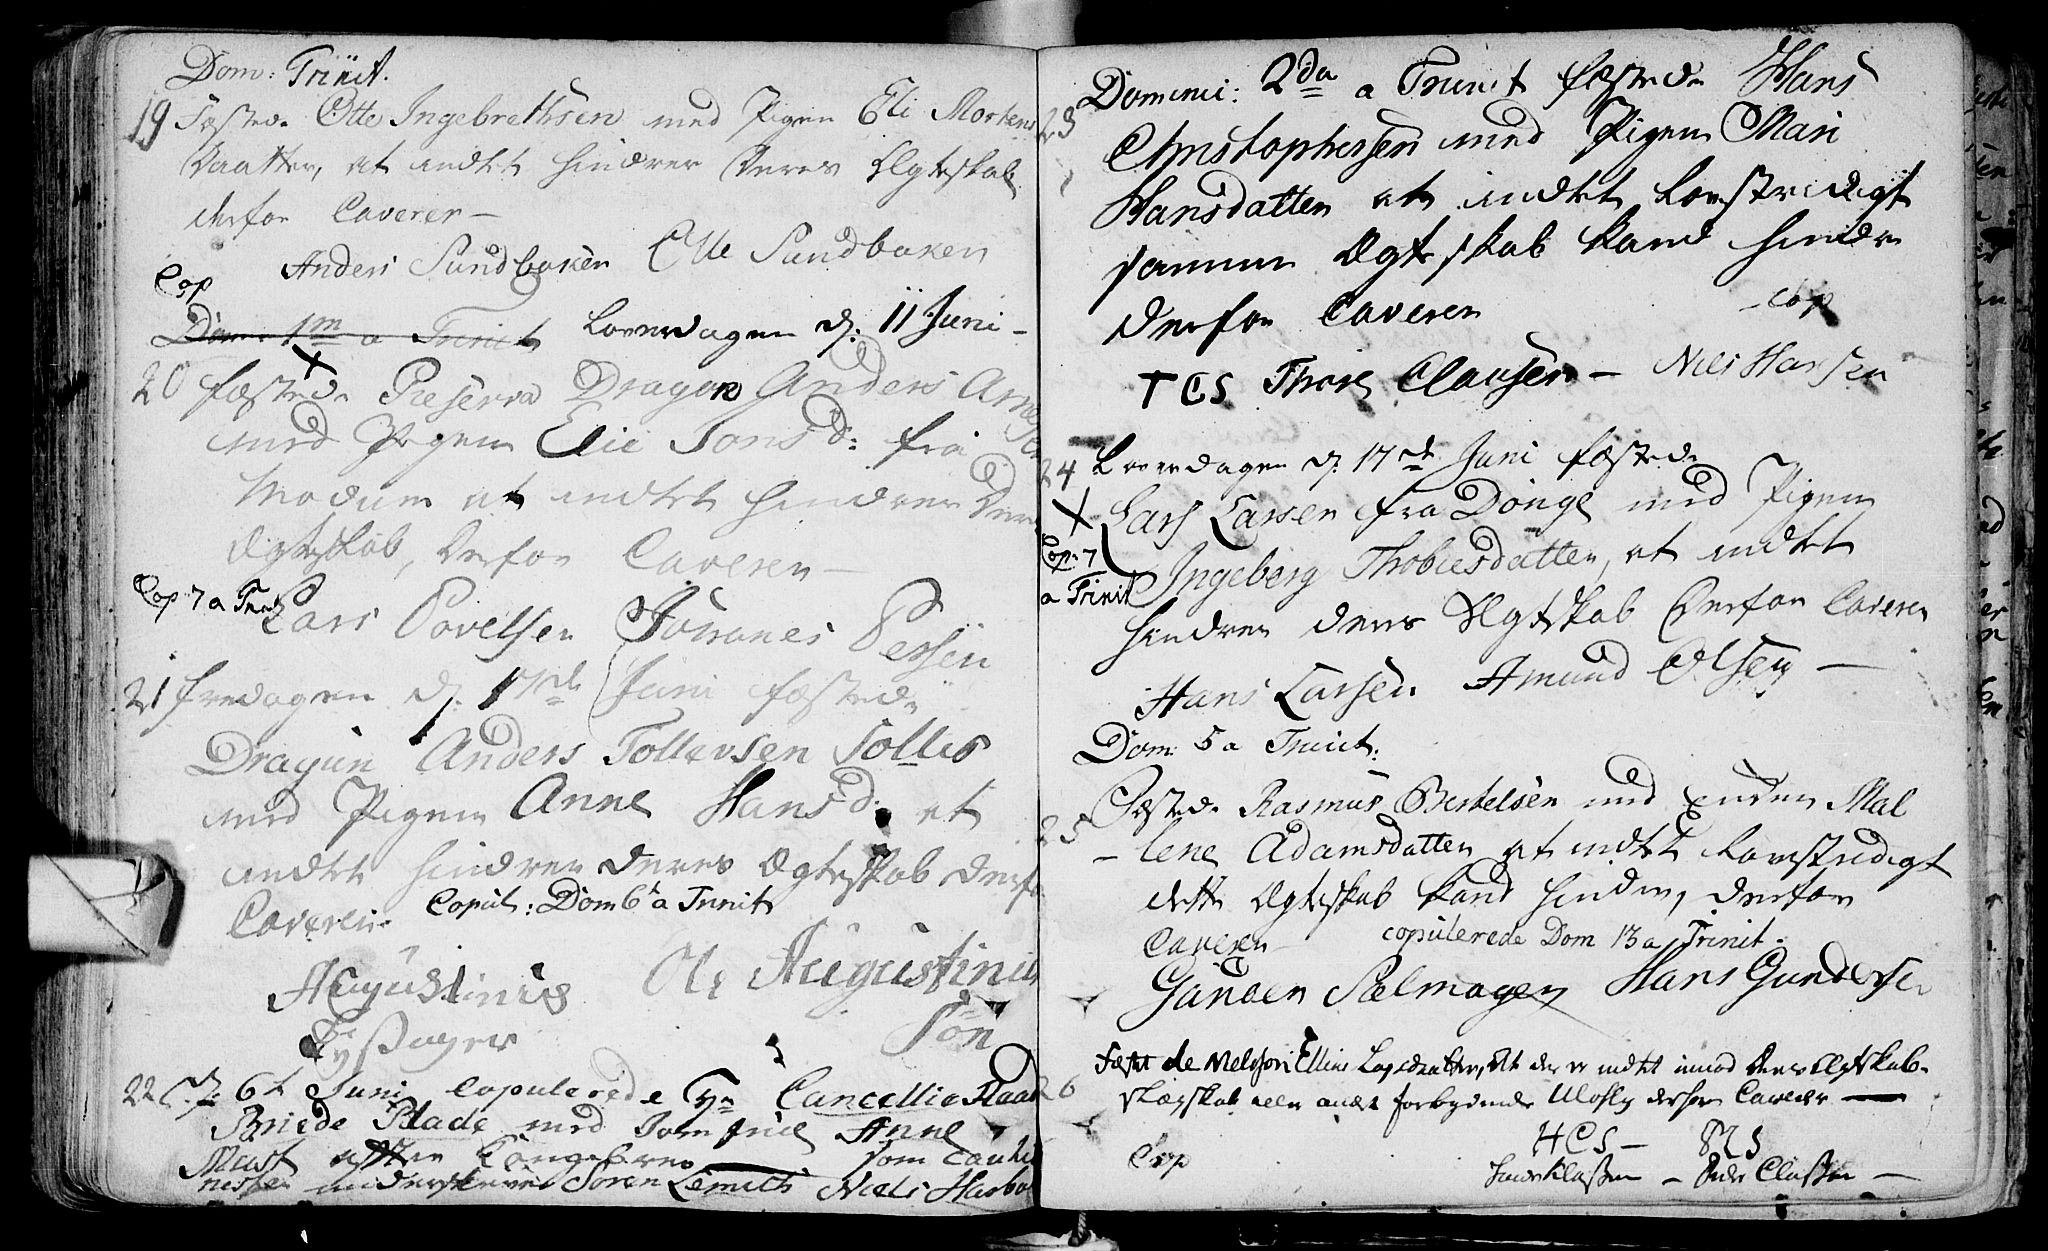 Dom: Trinit.
19 Fæstede Otte Ingebrethsen med Pigen Eli Mortens
Daatter, at indtet hindrer Deres Ægteskab
derfor Caverer —
Anders Sundbaken Otte Sundbaken
Cop
Dom: 1m a Trinit Løverdagen d. 11 Juni —
20 fæstede Reserva Dragon Anders Arnesen
med Pigen Elie Jonsd: fra
Modum at indtet hindrer Deres
Ægteskab, derfor Caverer —
Cop 7 a Trinit
Lars Povelsen Johanes Persen
21 fredagen d. 17de Juni fæstede
Dragun Anders Tollevsen Follis
med Pigen Anne Hansd: at
indtet hindrer deres Ægteskab derfor
Caverer. Copul: Dom 6t a Trinit
Augustinus Ole Augustinus
Søn
22 d. 6t Juni Copulerede Cancellie Raad
med Jomfrue Anne
efter Kongebrev som
underskrev Søren Niels
Domini: 2da a Trinit fæstede Hans
23 Christophersen med Pigen Mari
Hansdatter at indtet Lovstridigt
samme Ægteskab kand hindre
derfor Caverer
cop
T C S Thore Clausen — Niels Hansen
24 Løverdagen d. 17de Juni fæstede
Lars Larsen fra Donge med Pigen
Cop: 7
a Trinit
Ingeborg Thobiesdatter, at indtet
hindrer deres Ægteskab Derfor Caverer
Hans Larsen Amund Olsen —
Dom: 5 a Trinit:
25 Fæstede Rasmus Bertelsen med Enken Mal
- lene Adamsdatter at indtet Lovstridigt
dette Ægteskab kand hindre, derfor
Caverer copulerede Dom 13 a Trinit.
Gunder Salmager Hans Gundersen
26 Fæstede Ellins Larsdatter, at der er indtet imod Deres Ægteskab
eller andet forbydende derfor Caverer —
Cop
H C S —
Clasen — Peder Clasen —